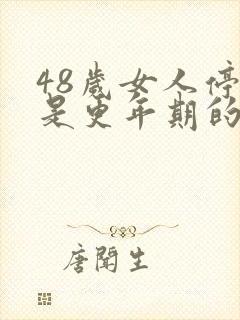 48歲女人停
是更年期的
唐聞生